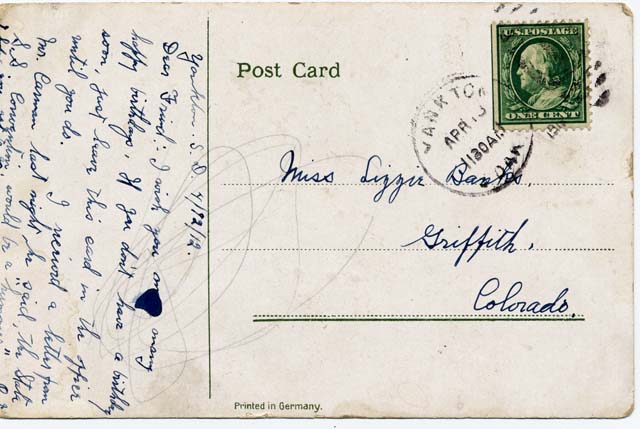 Yankton, S. D. 4/12/12.
Dear Friend: I wish you m many
happy birthdays, If you don't have a birthday
soon, just leave this card in the office
until you do.
I received a letter from
Mr. Carman last night he said, the State
S.S. Convention would be a "hummer"
Post Card
U.S. POSTAGE
ONE CENT
YANKTON
APR 13
1130AM
DAK
Miss Lizzie Banks,
Griffith,
Colorado.
Printed in Germany.